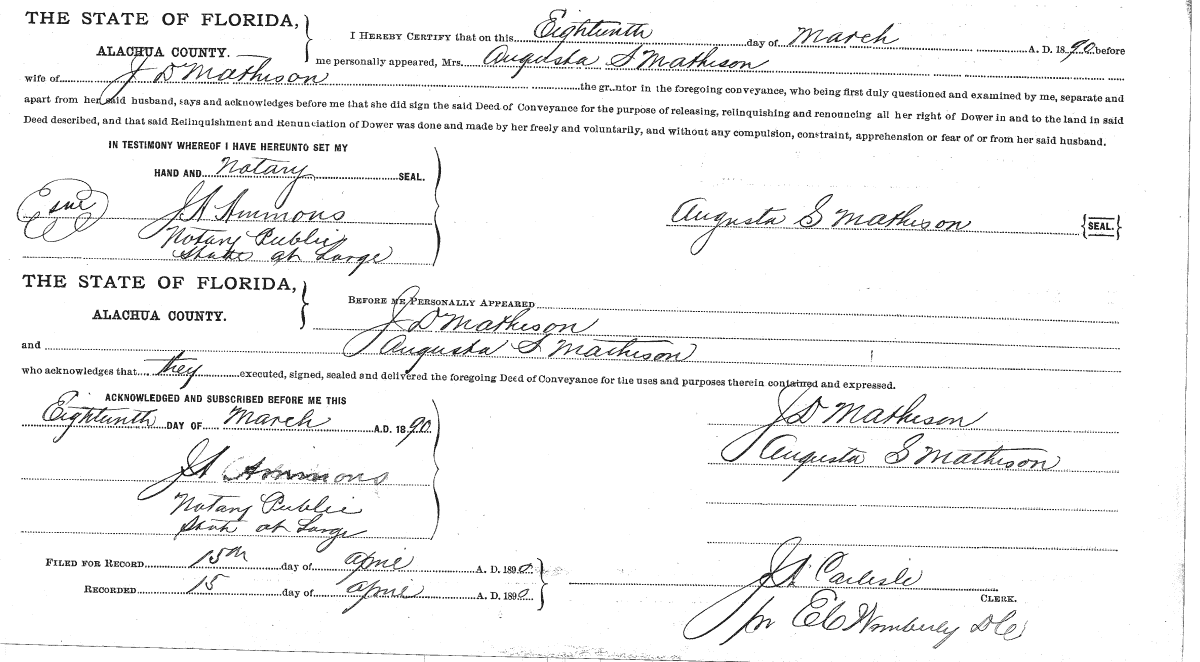 THE STATE OF FLORIDA,
ALACHUA COUNTY.
I HEREBY CERTIFY that on this Eighteenth day of March A. D. 1890 before
me personally appeared, Mrs. Augusta S Matheson
wife of J D Matheson the grantor in the foregoing conveyance, who being first duly questioned and examined by me, separate and
apart from her said husband, says and acknowledges before me that she did sign the said Deed of Conveyance for the purpose of releasing, relinquishing and renouncing all her right of Dower in and to the land in said
Deed described, and that said Relinquishment and Renunciation of Dower was done and made by her freely and voluntarily, and without any compulsion, constraint, apprehension or fear of or from her said husband.
IN TESTIMONY WHEREOF I HAVE HEREUNTO SET MY
HAND AND Notary SEAL.
J A Ammons
Notary Public
State at Large
Augusta S Matheson {SEAL.}
THE STATE OF FLORIDA,
ALACHUA COUNTY.
BEFORE ME PERSONALLY APPEARED
J D Matheson
and Augusta S Matheson
who acknowledges that they executed, signed, sealed and delivered the foregoing Deed of Conveyance for the uses and purposes therein contained and expressed.
ACKNOWLEDGED AND SUBSCRIBED BEFORE ME THIS
Eighteenth DAY OF March A.D. 1890
J A Ammons
Notary Public
State at Large
J D Matheson
Augusta S Matheson
FILED FOR RECORD 15th day of April A. D. 1890
RECORDED 15 day of April A. D. 1890
J A Carlisle
CLERK.
pr E C Wimberly DC